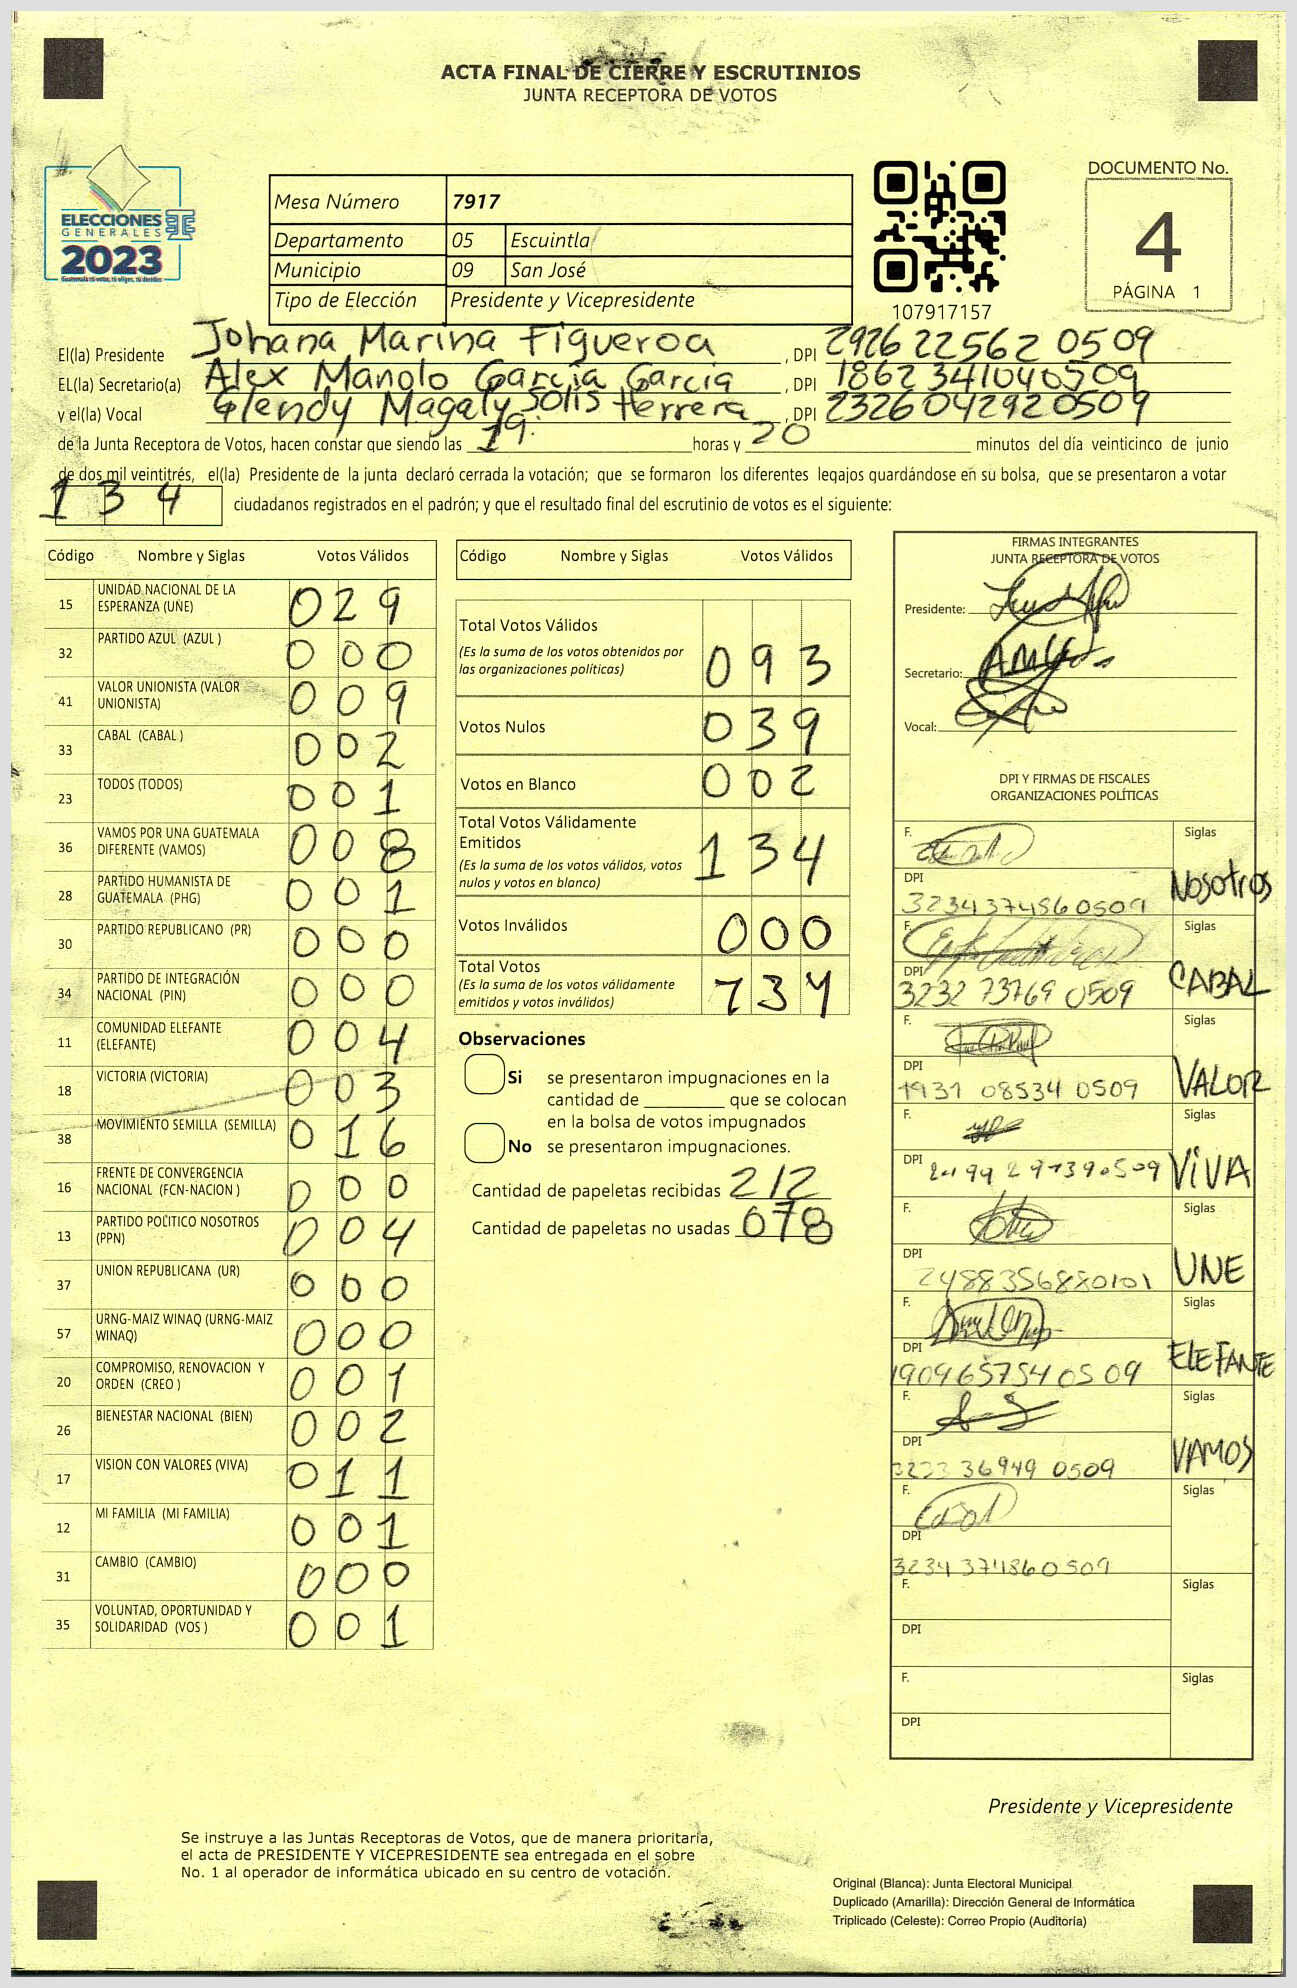 ACTA FINAL DE CIERRE Y ESCRUTINIOS
JUNTA RECEPTORA DE VOTOS
ELECCIONES
GENERALES
2023
Mesa Número 7917
Departamento 05 Escuintla
Municipio 09 San José
Tipo de Elección Presidente y Vicepresidente
107917157
DOCUMENTO No.
4
PÁGINA 1
El(la) Presidente Johana Marina Figueroa, DPI 2926 22562 0509
EL(la) Secretario(a) Alex Manolo García García, DPI 1862 341040509
y el(la) Vocal Glendy Magaly Solis Herrera, DPI 2326042920509
de la Junta Receptora de Votos, hacen constar que siendo las 19: horas y 20 minutos del día veinticinco de junio
de dos mil veintitrés, el(la) Presidente de la junta declaró cerrada la votación; que se formaron los diferentes legajos guardándose en su bolsa, que se presentaron a votar
134 ciudadanos registrados en el padrón; y que el resultado final del escrutinio de votos es el siguiente:
Código Nombre y Siglas Votos Válidos
15 UNIDAD NACIONAL DE LA ESPERANZA (UNE) 029
32 PARTIDO AZUL (AZUL ) 000
41 VALOR UNIONISTA (VALOR UNIONISTA) 009
33 CABAL (CABAL ) 002
23 TODOS (TODOS) 001
36 VAMOS POR UNA GUATEMALA DIFERENTE (VAMOS) 008
28 PARTIDO HUMANISTA DE GUATEMALA (PHG) 001
30 PARTIDO REPUBLICANO (PR) 000
34 PARTIDO DE INTEGRACIÓN NACIONAL (PIN) 000
11 COMUNIDAD ELEFANTE (ELEFANTE) 004
18 VICTORIA (VICTORIA) 003
38 MOVIMIENTO SEMILLA (SEMILLA) 016
16 FRENTE DE CONVERGENCIA NACIONAL (FCN-NACION ) 000
13 PARTIDO POLÍTICO NOSOTROS (PPN) 004
37 UNION REPUBLICANA (UR) 000
57 URNG-MAIZ WINAQ (URNG-MAIZ WINAQ) 000
20 COMPROMISO, RENOVACION Y ORDEN (CREO ) 001
26 BIENESTAR NACIONAL (BIEN) 002
17 VISION CON VALORES (VIVA) 011
12 MI FAMILIA (MI FAMILIA) 001
31 CAMBIO (CAMBIO) 000
35 VOLUNTAD, OPORTUNIDAD Y SOLIDARIDAD (VOS ) 001
Código Nombre y Siglas Votos Válidos
Total Votos Válidos 093
(Es la suma de los votos obtenidos por las organizaciones políticas)
Votos Nulos 039
Votos en Blanco 002
Total Votos Válidamente Emitidos 134
(Es la suma de los votos válidos, votos nulos y votos en blanco)
Votos Inválidos 000
Total Votos 134
(Es la suma de los votos válidamente emitidos y votos inválidos)
Observaciones
Si se presentaron impugnaciones en la
cantidad de ________ que se colocan
en la bolsa de votos impugnados
No se presentaron impugnaciones.
Cantidad de papeletas recibidas 212
Cantidad de papeletas no usadas 078
FIRMAS INTEGRANTES
JUNTA RECEPTORA DE VOTOS
Presidente:
Secretario:
Vocal:
DPI Y FIRMAS DE FISCALES
ORGANIZACIONES POLÍTICAS
F. Siglas
DPI 3234374860509 Nosotros
F. Siglas
DPI 3232 73769 0509 CABAL
F. Siglas
DPI 1931 08534 0509 VALOR
F. Siglas
DPI VIVA
F. Siglas
DPI 2488356880101 UNE
F. Siglas
DPI 1909657540509 ELEFANTE
F. Siglas
DPI 3233 36949 0509 VAMOS
F. Siglas
DPI 3234374860509
F. Siglas
DPI
F. Siglas
DPI
Presidente y Vicepresidente
Se instruye a las Juntas Receptoras de Votos, que de manera prioritaria,
el acta de PRESIDENTE Y VICEPRESIDENTE sea entregada en el sobre
No. 1 al operador de informática ubicado en su centro de votación.
Original (Blanca): Junta Electoral Municipal
Duplicado (Amarilla): Dirección General de Informática
Triplicado (Celeste): Correo Propio (Auditoría)